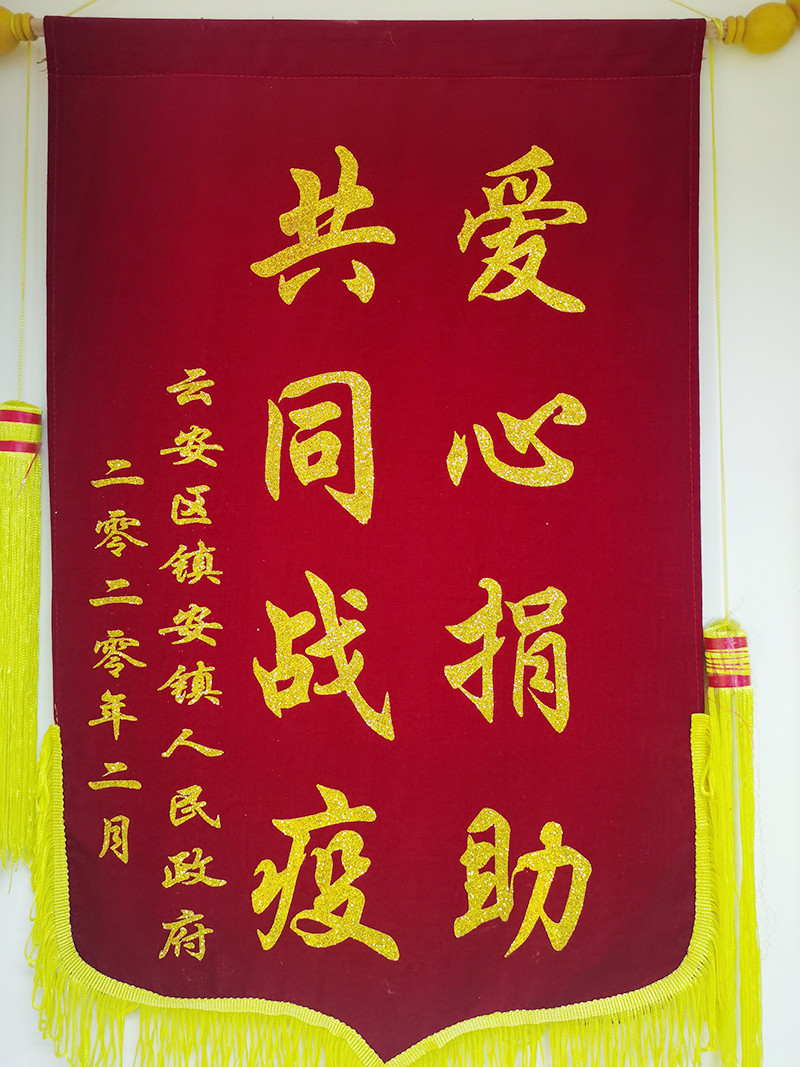 爱心捐助
共同战疫
云安区镇安镇人民政府
二零二零年二月